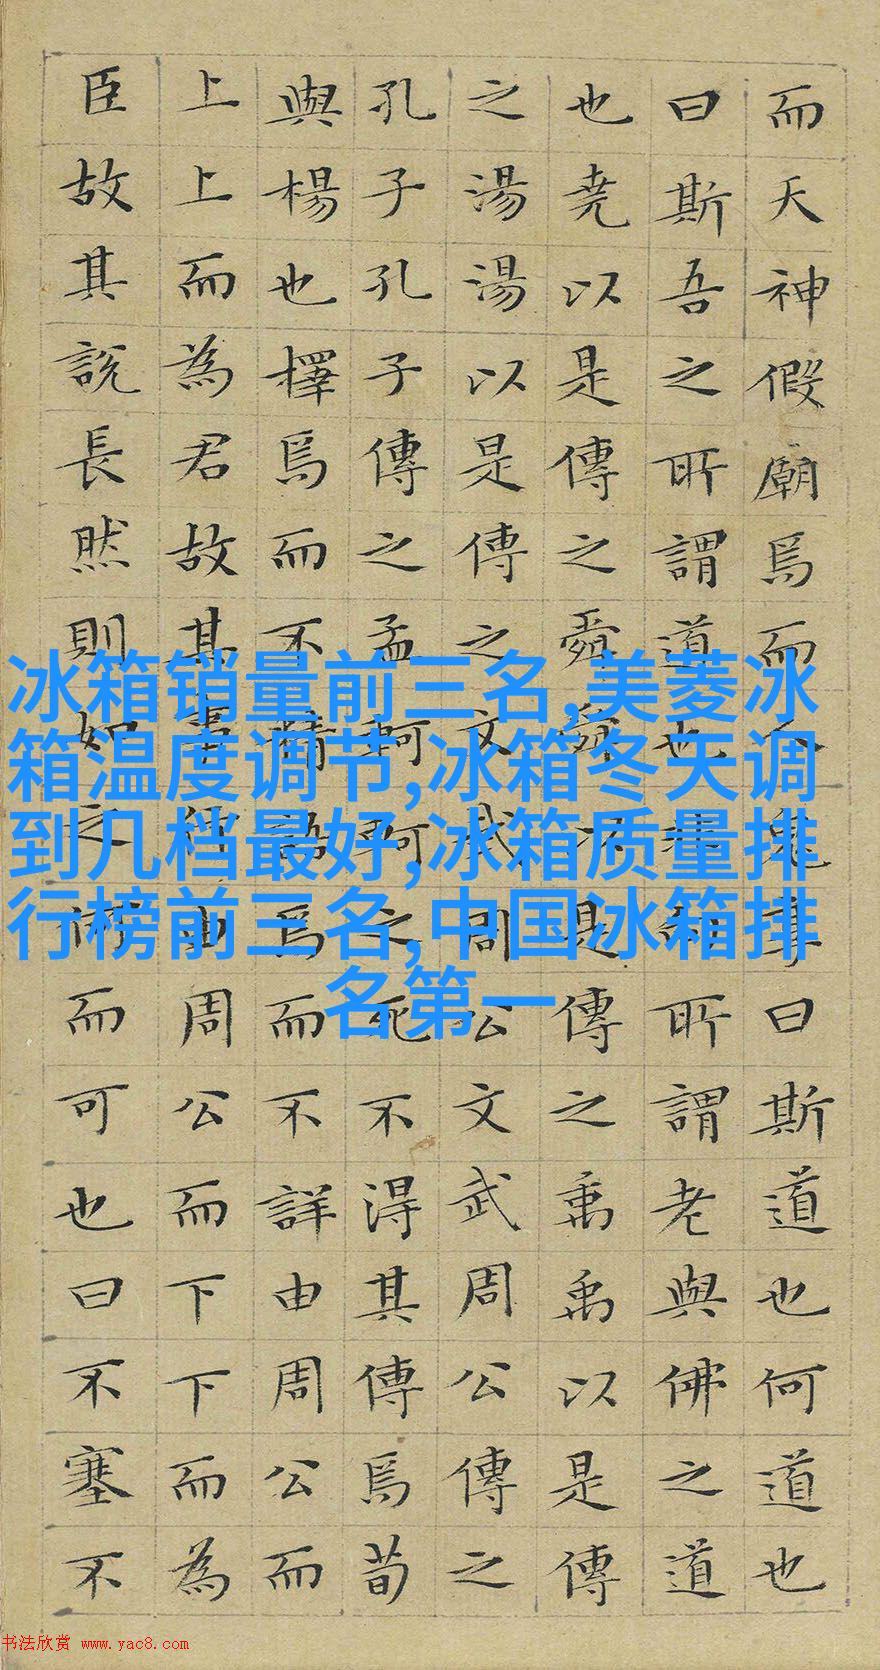 而天神假廟焉而人鬼享曰斯道也何道也
曰斯吾之所謂道也非向所謂老與佛之道
也堯以是傳之舜舜以是傳之禹禹以是傳
之湯湯以是傳之文武周公文武周公傳之
孔子孔子傳之孟軻軻之死不得其傳焉荀
與楊也擇焉而不精語焉而不詳由周公而
上上而為君故其事行由周公而下下而為
臣故其說長然則如之何而可也曰不塞不
冰箱销量前三名,美菱冰
箱温度调节,冰箱冬天调
到几档最好,冰箱质量排
行榜前三名,中国冰箱排
名第一
书法欣赏 www.yac8.com